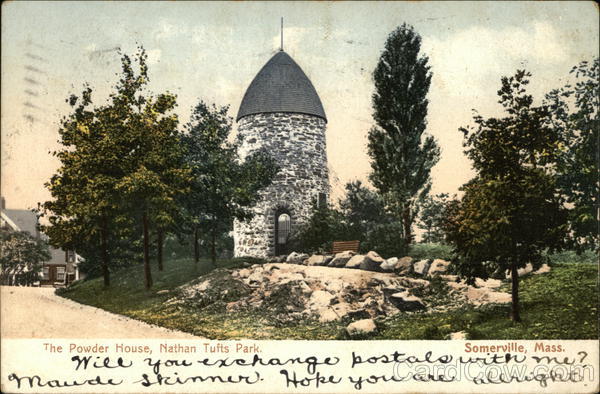 The Powder House, Nathan Tufts Park. Somerville, Mass.
Will you exchange postals with me?
Maude Skinner. Hope you are alright.
CardCow.com